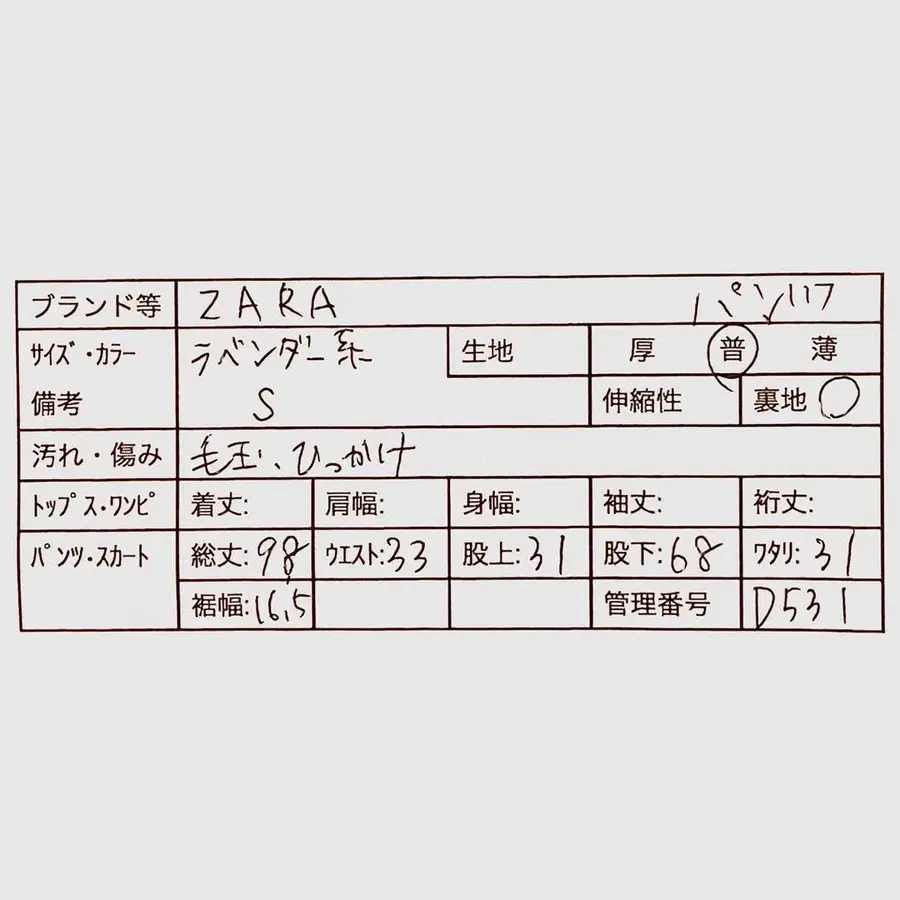 ブランド等 ZARA パンツ117
サイズ・カラー ラベンダー系 生地 厚 普 薄
備考 S 伸縮性 裏地 ○
汚れ・傷み 毛玉、ひっかけ
トップス・ワンピ 着丈: 肩幅: 身幅: 袖丈: 裄丈:
パンツ・スカート 総丈:98 ウエスト:33 股上:31 股下:68 ワタリ:31
裾幅:16,5 管理番号 D531